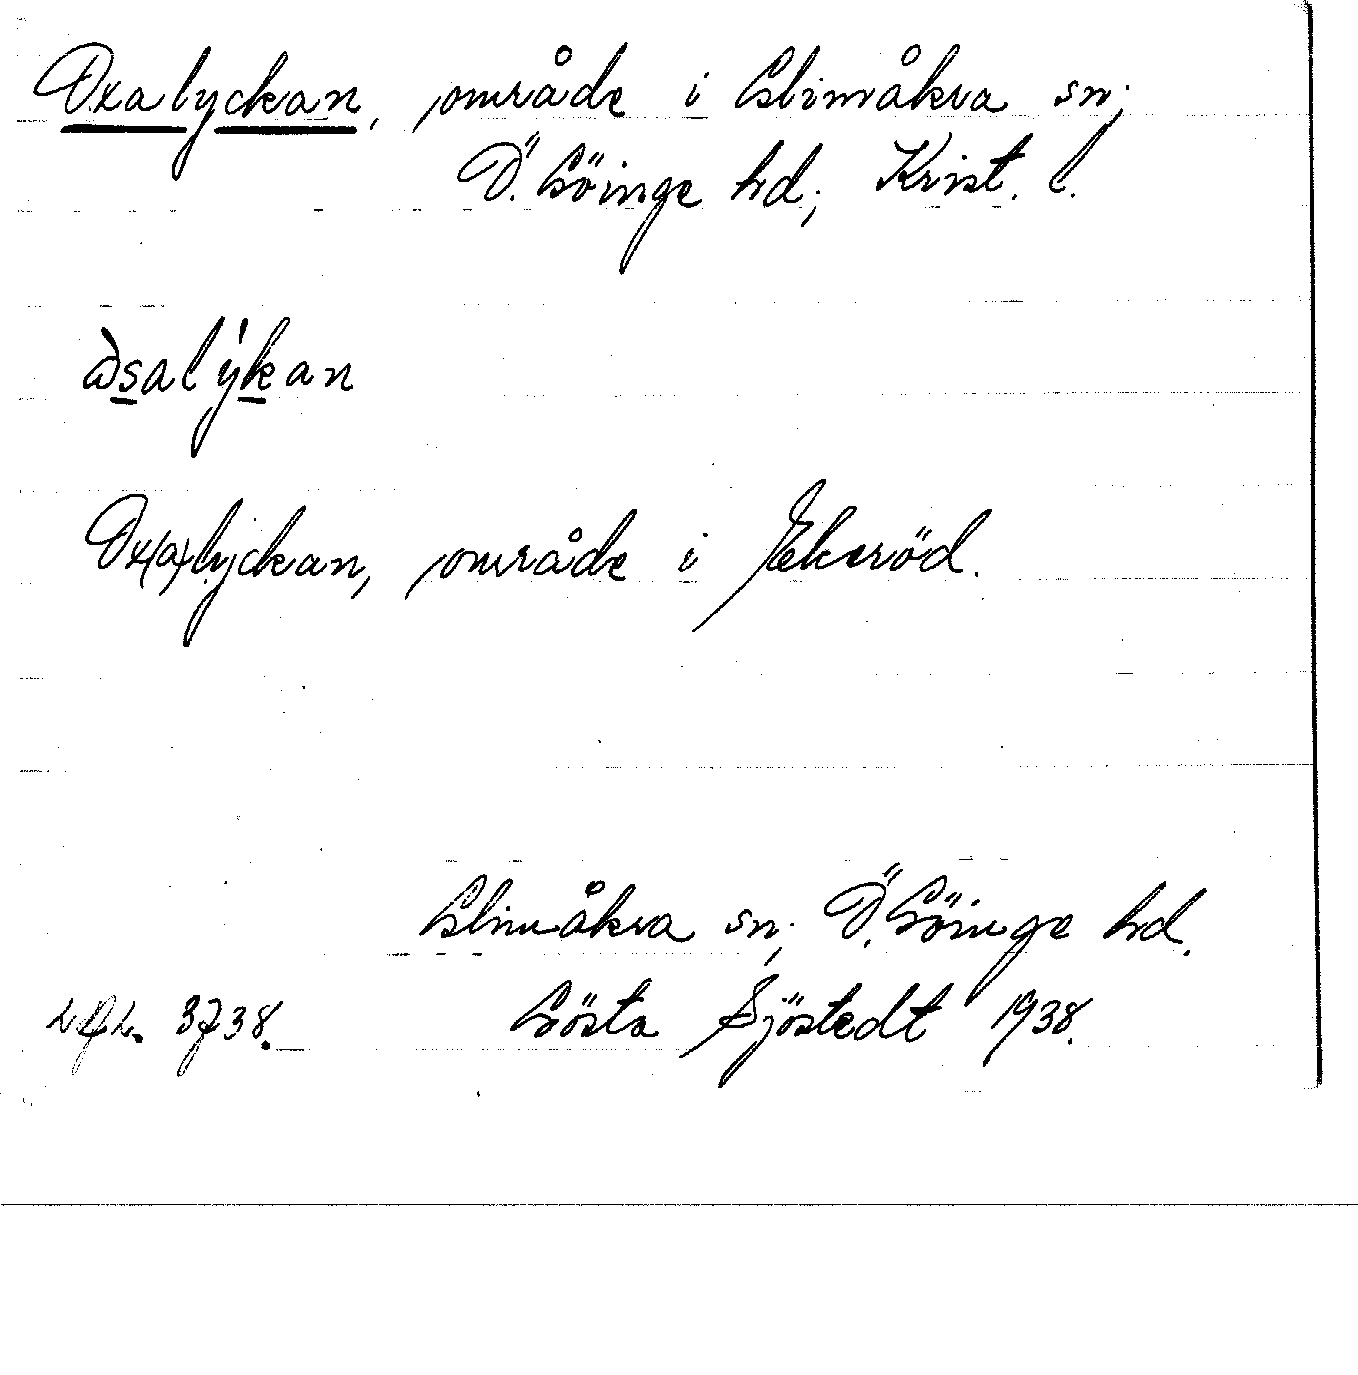 Oxalyckan, område i Glimåkra sn;
Ö. Göinge hd; Krist. l.
Ox(a)lyckan, område i Ekeröd.
Glimåkra sn; Ö. Göinge hd.
3738. Gösta Sjöstedt 1938.